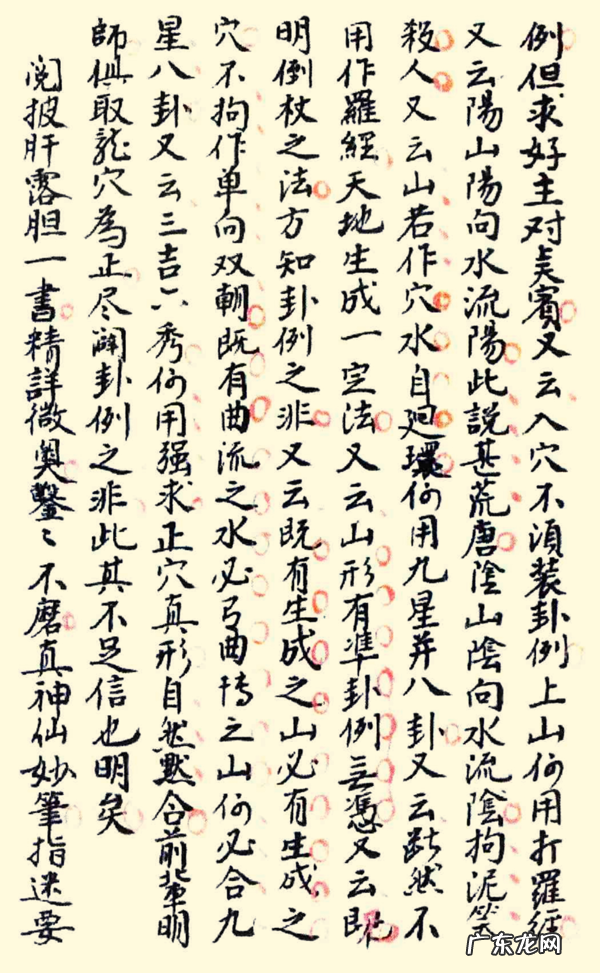 例但求好主对美賓又云入穴不須装卦例上山何用打羅經
又云陽山陽向水流陽此説甚荒唐陰山陰向水流陰拘泥笑
殺人又云山若作穴水自廻環何用九星并八卦又云断然不
用作羅經天地生成一定法又云山形有準卦例無憑又云既
明倒杖之法方知卦例之非又云既有生成之山必有生成之
穴不拘作单向双朝既有曲流之水必弓曲转之山何必合九
星八卦又云三吉六秀何用强求正穴真形自然黙合前輩明
師俱取龍穴為正尽闢卦例之非此其不足信也明矣
阅披肝露胆一書精詳微奥鑿〻不磨真神仙妙筆指迷要
广东龙网